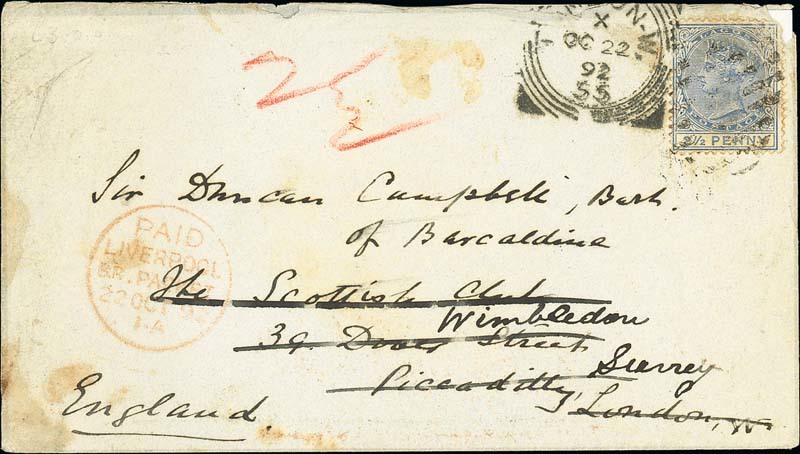 2½
X
OC 22
92
55
LAGOS
2½ PENNY
Sir Duncan Campbell, Bart.
of Barcaldine
PAID
LIVERPOOL
BR. PACKET
22 OCT 92
1-A
The Scottish Club
Wimbledon
39 Dover Street
Surrey
Piccadilly,
London, W.
England.